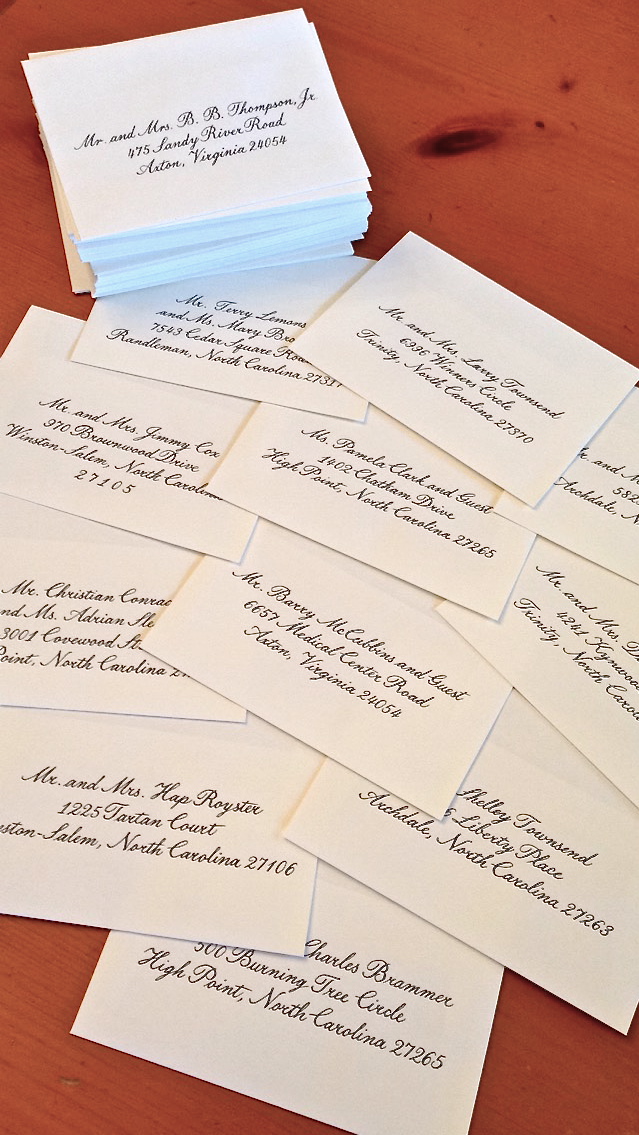 Mr. and Mrs. B. B. Thompson, Jr.
475 Sandy River Road
Axton, Virginia 24054
Mr. Terry Lemons
and Ms. Mary
7543 Cedar Square
Randleman, North Carolina
Mr. and Mrs. Larry Townsend
6996 Winners Circle
Trinity, North Carolina 27370
Mr. and Mrs. Jimmy Cox
970 Brownwood Drive
Winston-Salem, North Carolina
27105
Ms. Pamela Clark and Guest
1402 Chatham Drive
High Point, North Carolina 27265
582
Archdale,
Mr. Christian Conrad
and Ms. Adrian
3001 Covewood
Point, North Carolina
Mr. Barry McCubbins and Guest
6657 Medical Center Road
Axton, Virginia 24054
Mr. and Mrs.
4241
Trinity, North
Mr. and Mrs. Hap Royster
1225 Tartan Court
Winston-Salem, North Carolina 27106
Shelley Townsend
Liberty Place
Archdale, North Carolina 27263
Charles Brammer
500 Burning Tree Circle
High Point, North Carolina 27265